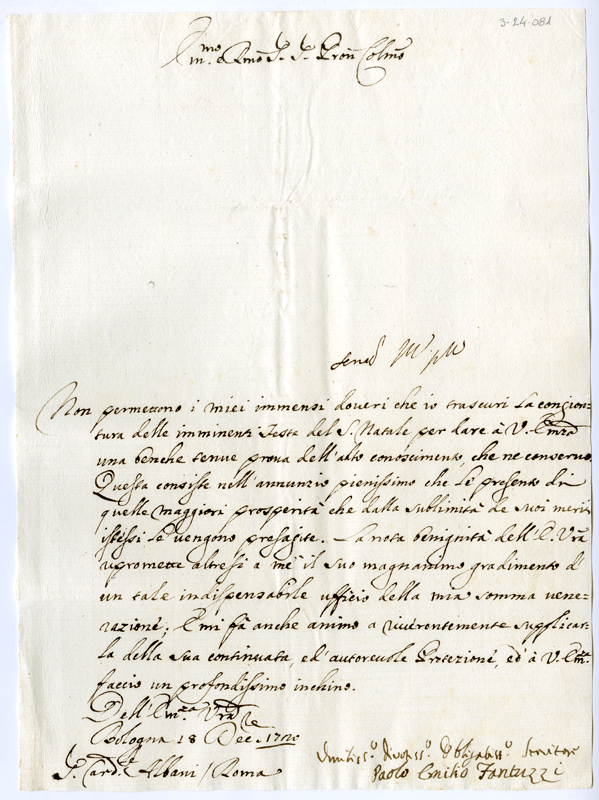 3-24-081
Em.mo e Rmo Sr. Sr. Pron Colmo
Non permettono i miei immensi doveri che io trascuri la congion-
tura delle imminenti Feste del S. Natale per dare à V. Emza
una benche tenue prova dell'alto conoscimento, che ne conservo.
Questa consiste nell'annunzio pienissimo che le presento di
quelle maggiori prosperità che dalla sublimità de suoi meriti
istessi le vengono presagite. La nota benignità dell'E. Vra
ripromette altresì a me il suo magnanimo gradimento d'
un tale indispensabile ufficio della mia somma vene-
razione; E mi fà anche animo a riverentemente supplicar-
la della sua continuata, ed'autorevole Protezione, ed à V. Emza
faccio un profondissimo inchino.
Dell'Emza Vra
Bologna 18 Dec.
Sr. Card.l Albani / Roma
Umiliss.o divotiss.o Obligatiss.o Servitore
Paolo Emilio Fantuzzi